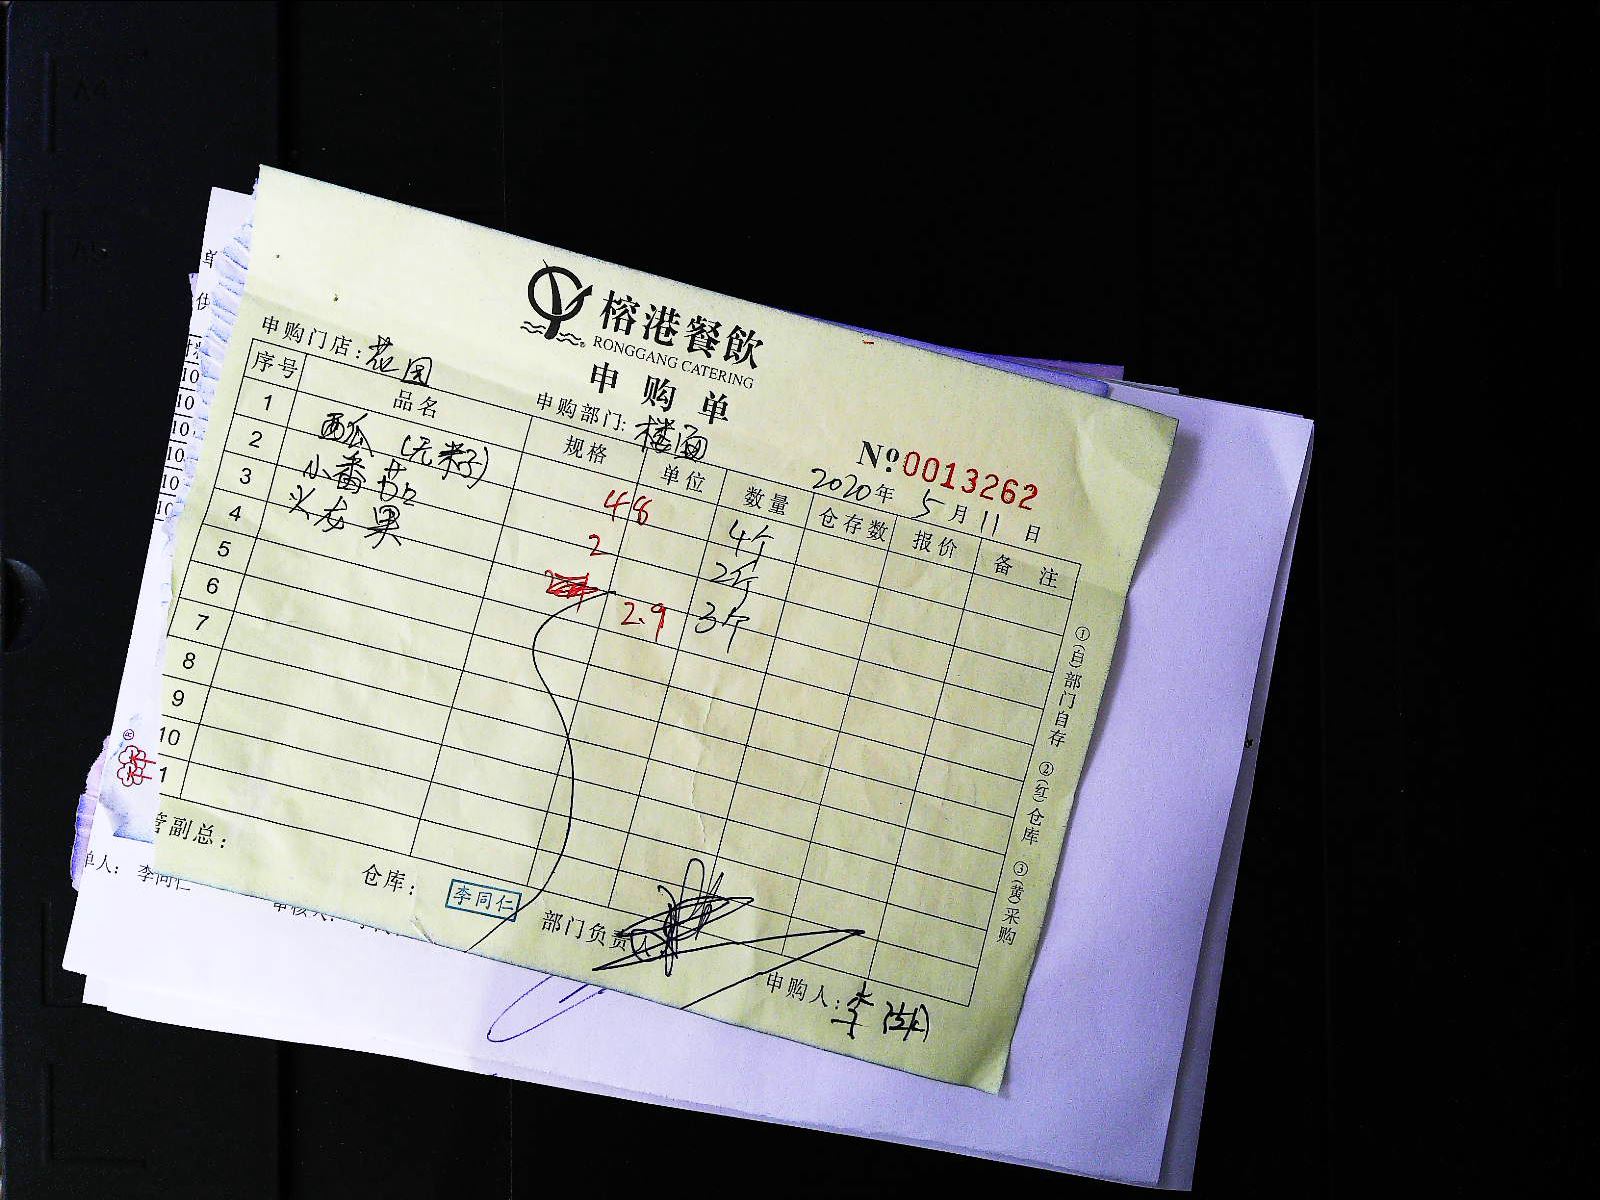 榕港餐飲
RONGGANG CATERING
申购单
申购门店：花园
申购部门：楼面
№ 0013262
2020年5月11日
序号 品名 规格 单位 数量 仓存数 报价 备注
1 西瓜（无籽） 48 4个
2 小番茄 2 2斤
3 火龙果 2.9 3个
4
5
6
7
8
9
10
1
①(白)部门自存 ②(红)仓库 ③(黄)采购
管副总：
仓库：李同仁
部门负责
申购人：李
单人：李同仁